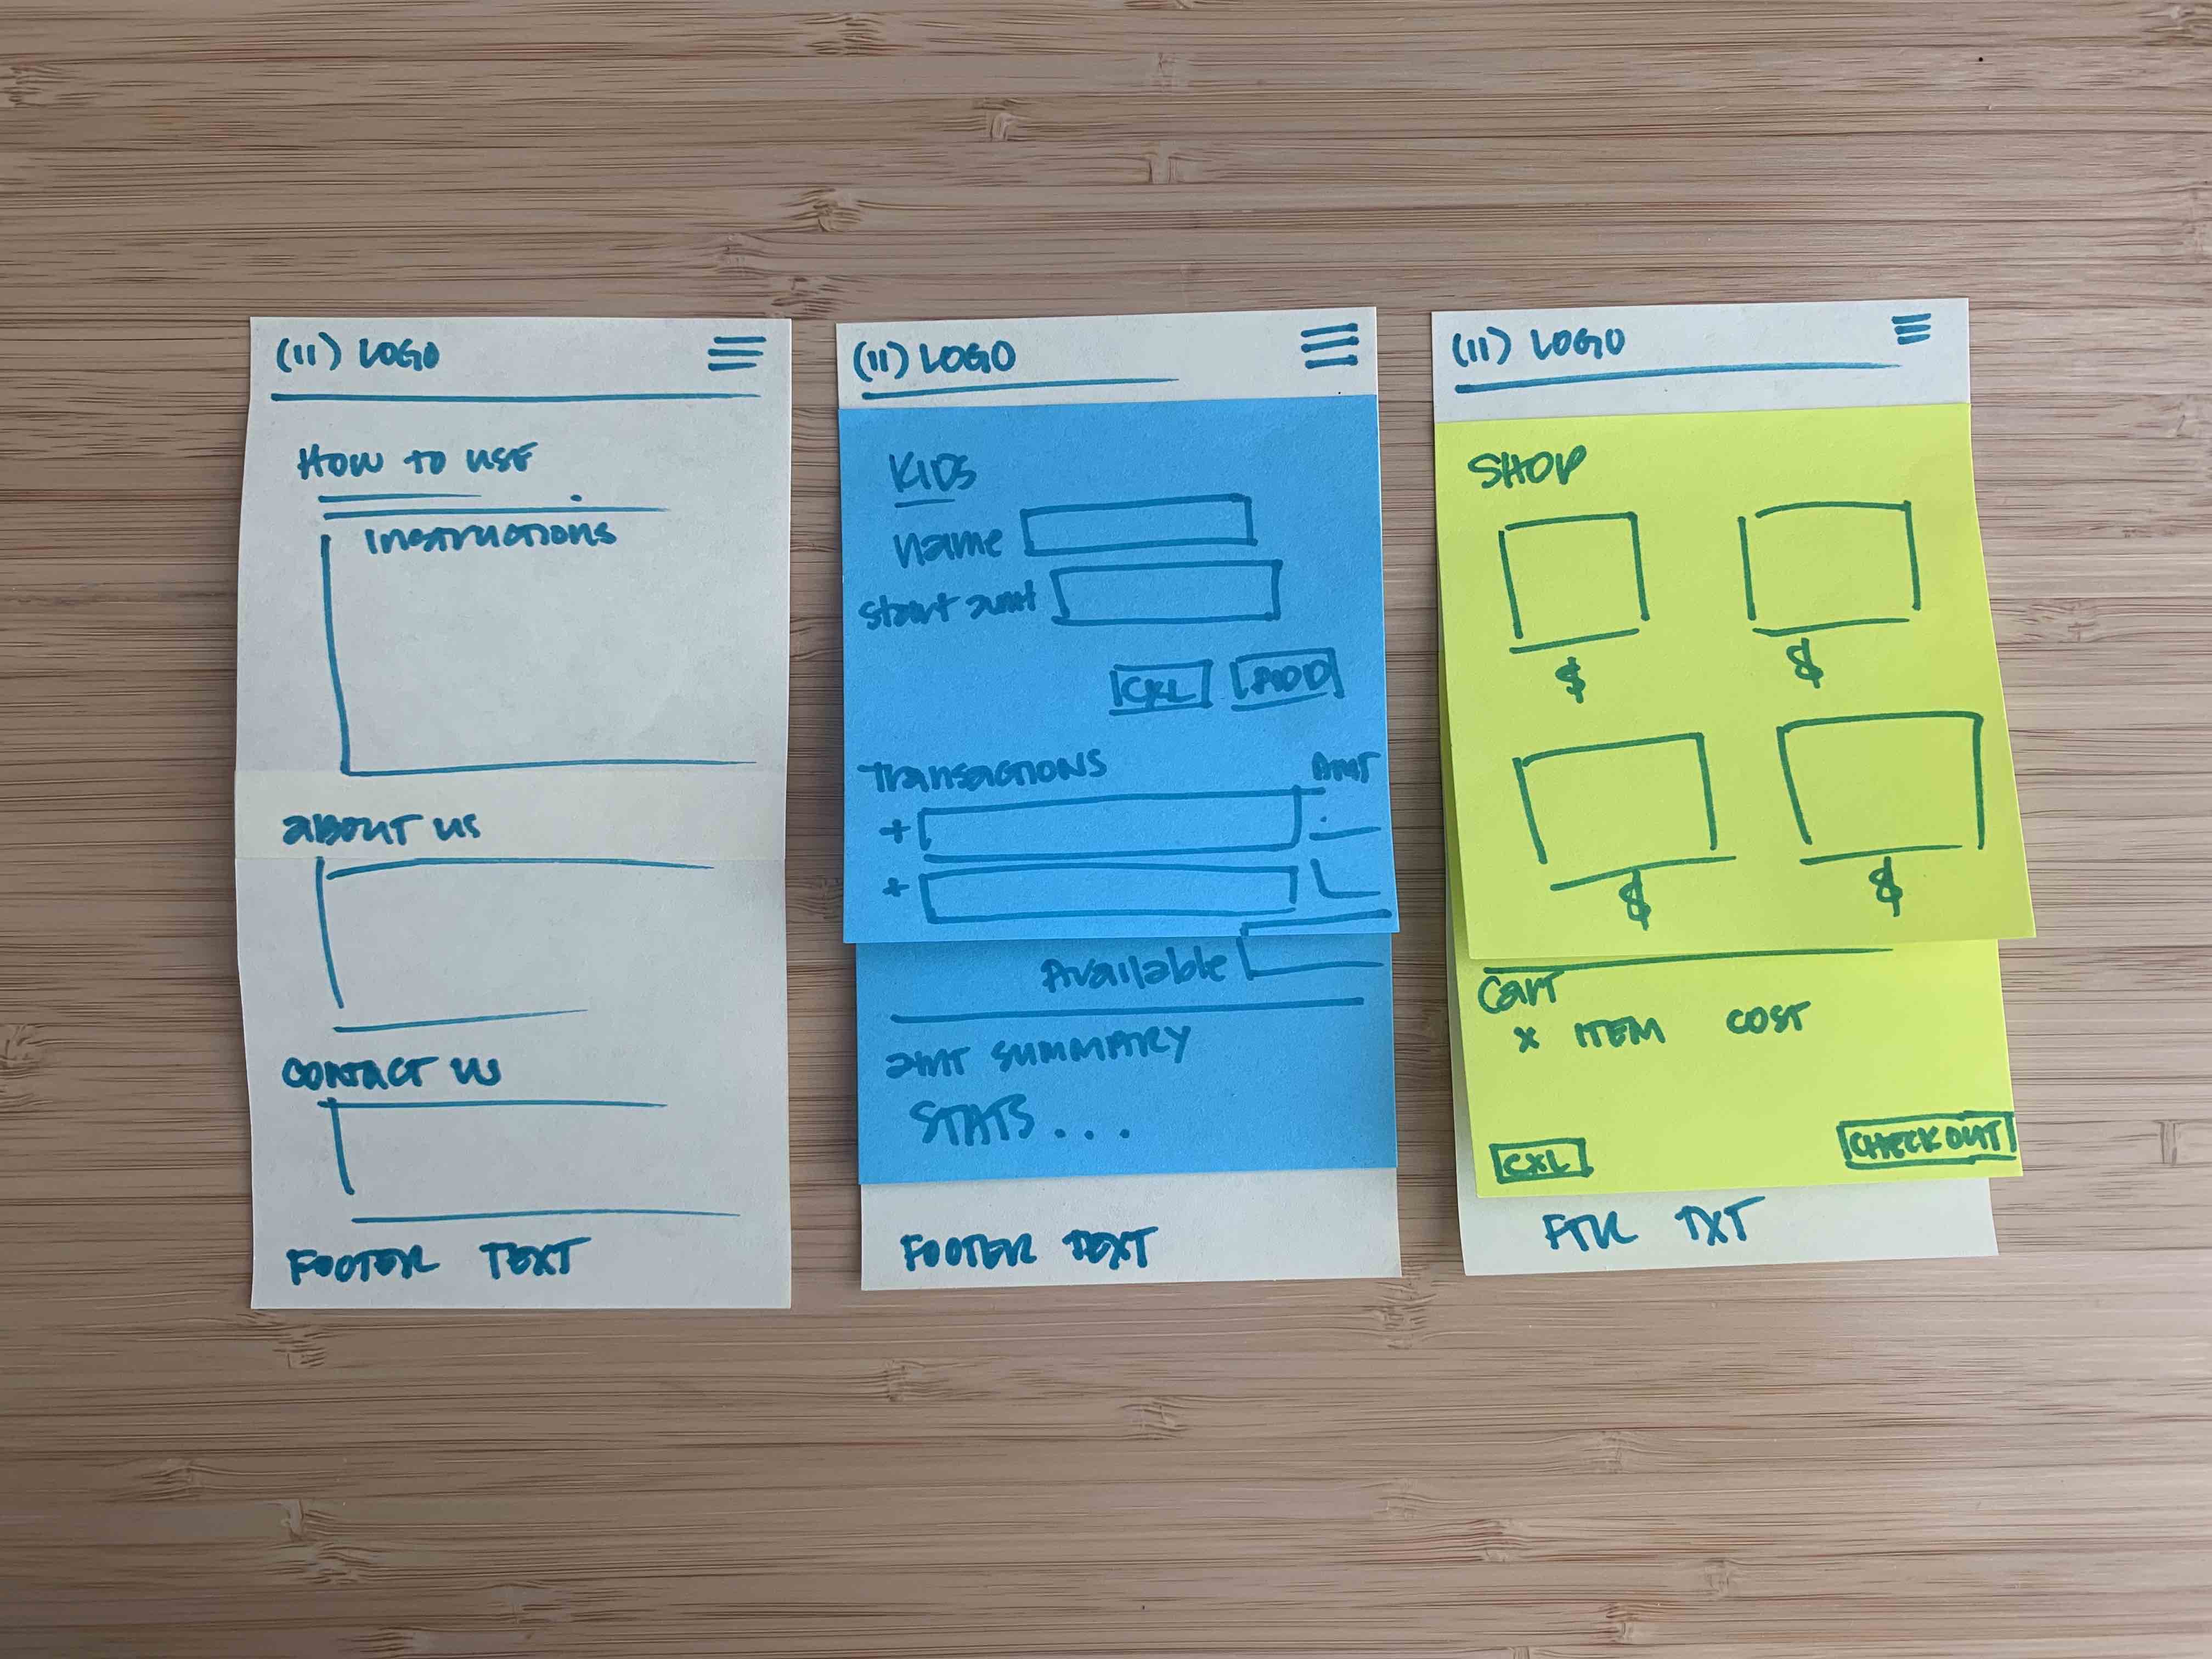 (11) LOGO
HOW TO USE
INSTRUCTIONS
ABOUT US
CONTACT US
FOOTER TEXT
(11) LOGO
KIDS
name
start amt
CXL ADD
Transactions Amt
+
+
Available
amt SUMMARY
STATS...
FOOTER TEXT
(11) LOGO
SHOP
$ $
$ $
Cart
x ITEM COST
CXL CHECKOUT
FTR TXT